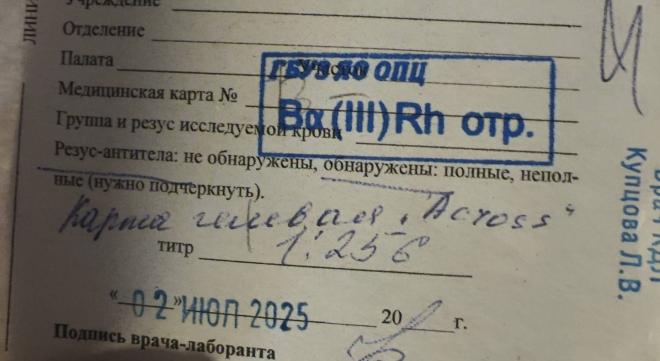 Учреждение
Отделение
Палата
ГБУЗ ЯО ОПЦ
Медицинская карта №
Bα (III) Rh отр.
Группа и резус исследуемой крови
Резус-антитела: не обнаружены, обнаружены: полные, непол-
ные (нужно подчеркнуть).
Карта гелевая „Across“
титр 1:256
„02“ ИЮЛ 2025 20 г.
Подпись врача-лаборанта
Врач КДЛ
Купцова Л.В.